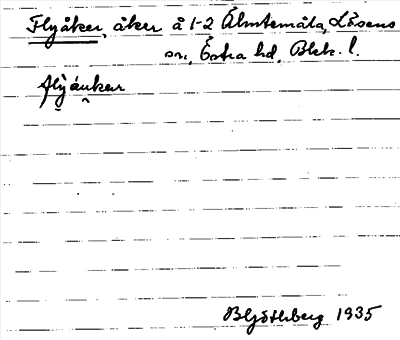 Flyåker, åker å 1-2 Älmtemåla, Lösens
sn, Östra hd, Blek. l.
flỳáukər
B Hjöthberg 1935